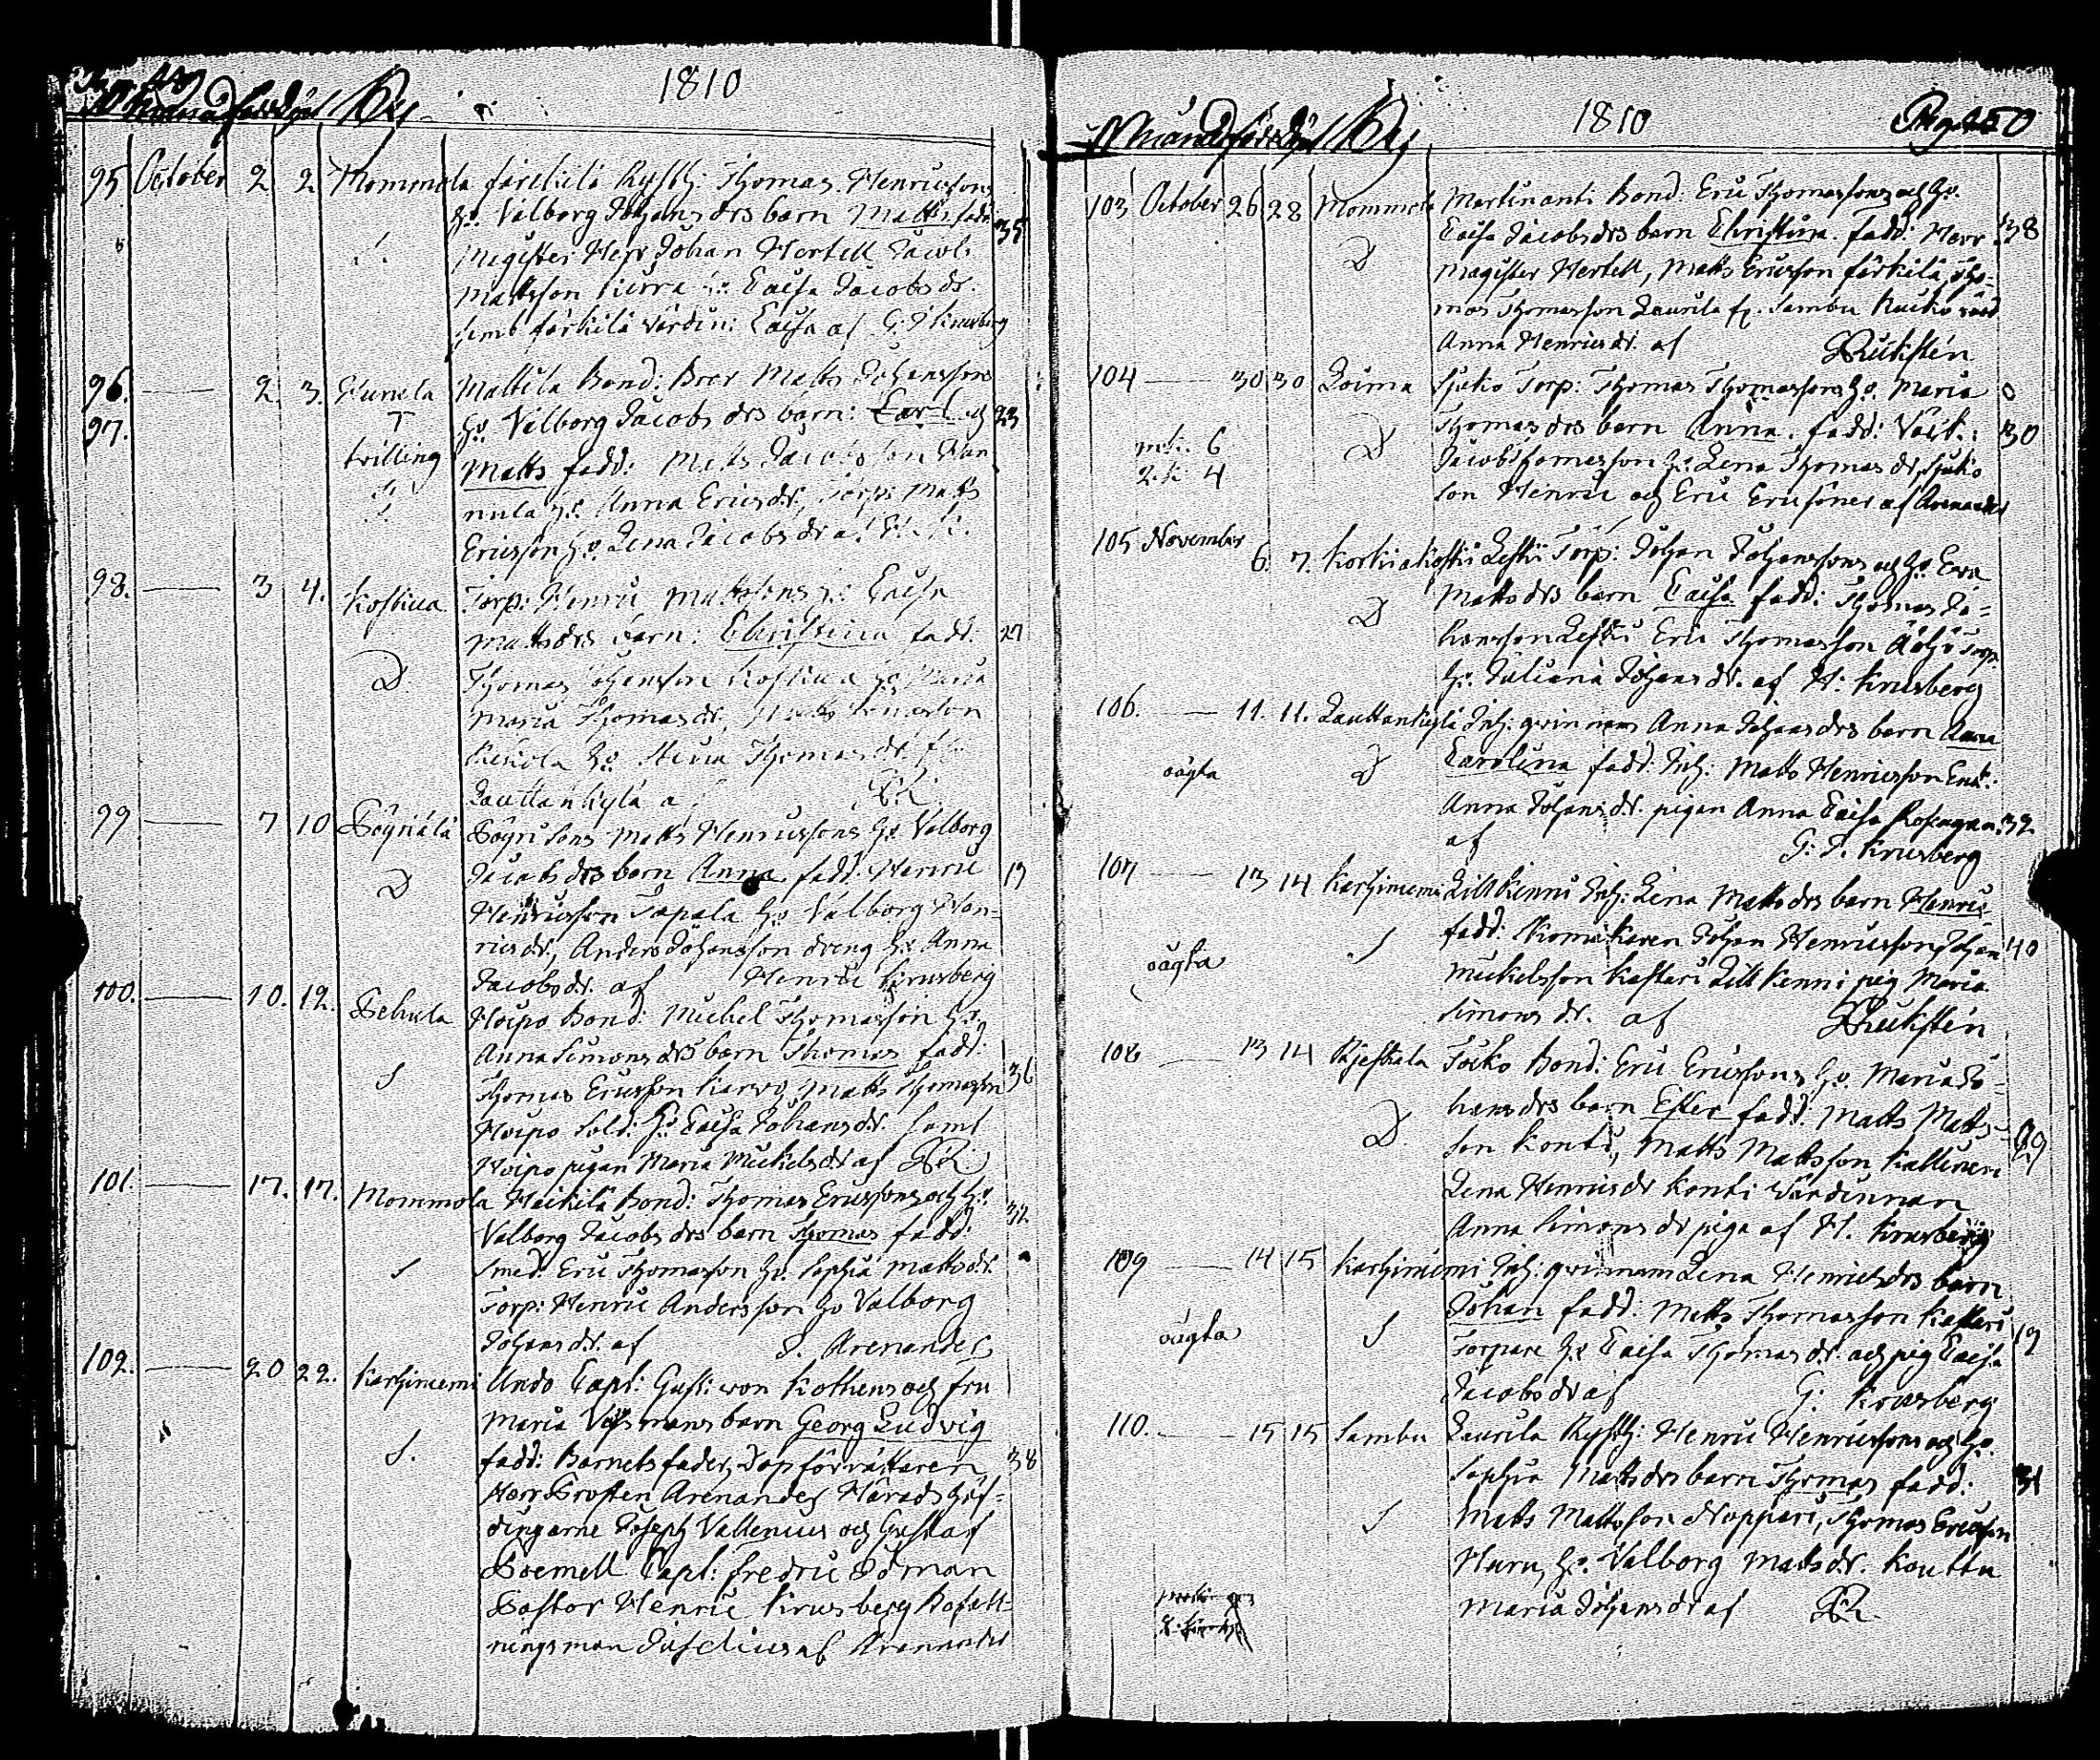 1810
By
95. October 2 2 Mommola förekilä Rysth: Thomas Henricssons
ho. Valborg Johansdrs barn Matts fadd: 35
Magister Herr Johan Hertell Jacob
Mattsson hustru Caisa Jacobsdr.
samt förkilä värdin: Caisa af G: J Krusberg
96. 2. 3. Hunela Mattila Bond: Bror Matts Johanssons
97. T ho. Valborg Jacobs drs barn: Carl och 23
tvilling Matts fadd: Matts Jacobsson Han
nula ho. Anna Ericsdr., Torp: Matts
Ericsson ho. Lena Jacobsdr af H. K.
98. 3 4. Kostiua Torp: Henric Mattssons ho. Caisa
Mattsdrs barn: Christina fadd. 27
D Thomas Johansson Kostiua ho. Maria
Maria Thomasdr., Matts
ho. Maria Thomasdr. f
Lauttankylä af
99 7 10 Pöyriälä Pöyri sons Matts Henricssons ho. Valborg
D Jacobsdrs barn Anna. fadd. Henric 19
Henricsson Tapala ho. Valborg Hen-
ricsdr., Anders Johansson dreng ho. Anna
Jacobsdr. af Henric Krusberg
100. 10. 12. Sehula Hoipo Bond: Michel Thomasson ho.
Anna Simonsdrs barn Thomas fadd:
S Thomas Ericsson Karvo, Matts Thomasson 36
Hoipo sold: ho. Caisa Johansdr. samt
Hoipo pigan Maria Mickelsdr af
101. 17. 17. Mommola Heikilä Bond: Thomas Ericssons och ho.
Valborg Jacobsdrs barn Thomas fadd: 32
S Smed. Eric Thomasson ho. Sophia Mattsdr.
Torp: Henric Andersson ho Valborg
Johansdr. af J. Arenander
102. 20 22. Karhiniemi Undo Capt: Gust: von Kothens och fru
Maria Vasmans barn Georg Ludvig
S. fadd: Barnets fader, Dopförrättaren 38
Herr Prosten Arenander Häradshöf-
dingarne Joseph Vallenius och Gustaf
Poemell Capt: Fredric Ödman
Pastor Henric Krusberg Befatt-
ningsman Juselius af Arenander
By 1810 Pag: 150
103 October 26 28 Mommola Martinanti Bond: Eric Thomassons och ho.
Caisa Jacobsdrs barn Christina. fadd: Herr 38
D Magister Hertell, Matts Ericsson förkilä Tho-
mas Thomasson Laurila fr. Sambu
Anna Henricsdr. af
104 30 30 Loima Sjuko Torp: Thomas Thomassons ho. Maria 0
Thomasdrs barn Anna. fadd: 30
6 D Jacob Thomasson ho. Lena Thomasdr, Sjuko
4 son Henric och Eric Ericsöner af Arenander
105 November
6. 7. Korkiakoski Leski Torp: Johan Johanssons och ho. Eva
Mattsdrs barn Caisa fadd: Thomas Jo-
D hansson Leski Eric Thomasson Äöhö Torp.
ho. Juliana Johansdr. af H: Krusberg
106. 11. 11. Lauttankylä Inh: qvinnans Anna Johansdrs barn Anna
oägta D Carolina fadd: Inh: Matts Henricsson Enk:
Anna Johansdr. pigan Anna Caisa 32
af G: J. Krusberg
107 13 14 Karhiniemi Lill Kenni Inh: Lena Mattsdrs barn Henric
oägta S fadd: Johan Henricsson Johan 40
Mickelsson Kaskari Lill Kenni pig Maria
Simonsdr. af
108 13 14 Pajeskala Tåcko Bond: Eric Ericssons ho. Maria Jo-
hansdrs barn Ester fadd: Matts Matts-
D son Konti, Matts Mattsson Kallineri 29
Lena Henricsdr Konti värdinnan
Anna Simonsdr piga af H. Krusberg
109 14 15 Karhiniemi Inh: qvinnans Lena Henricsdrs barn
oägta S Johan fadd: Matts Thomasson Kaskari 19
Torpare ho. Caisa Thomasdr. och pig Caisa
Jacobsdr af G: Krusberg
110. 15 15 Sambu Laurila Rysth: Henric Henricssons och ho.
Sophia Mattsdrs barn Thomas fadd: 31
S Matts Mattsson Noppari, Thomas Ericsson
Huru, ho. Valborg Mattsdr. Kouttu
Maria Johansdr af